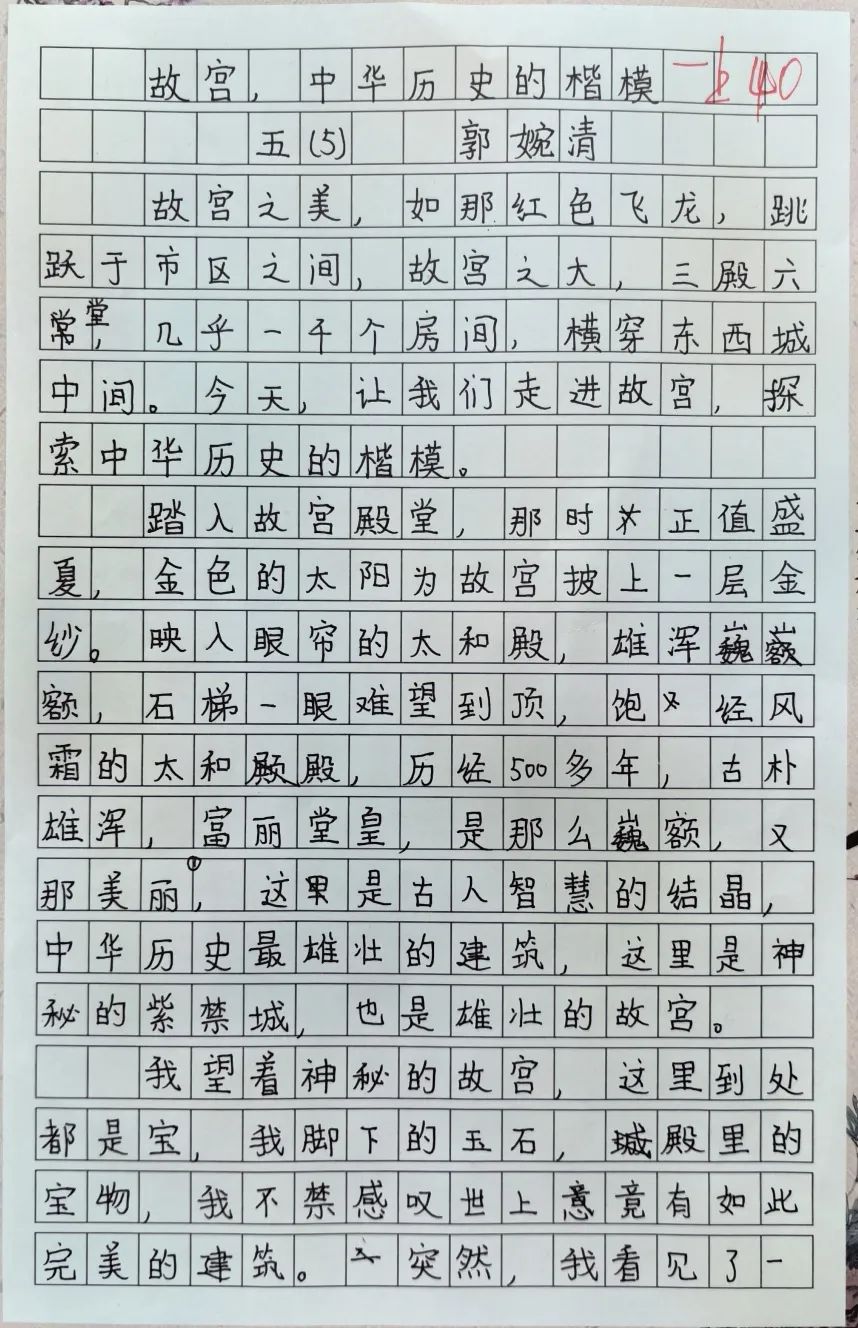 故宫，中华历史的楷模
五(5) 郭婉清
故宫之美，如那红色飞龙，跳
跃于市区之间，故宫之大，三殿六
堂，几乎一千个房间，横穿东西城
中间。今天，让我们走进故宫，探
索中华历史的楷模。
踏入故宫殿堂，那时正值盛
夏，金色的太阳为故宫披上一层金
纱。映入眼帘的太和殿，雄浑巍
额，石梯一眼难望到顶，饱经风
霜的太和殿，历经500多年，古朴
雄浑，富丽堂皇，是那么巍额，又
那美丽，这里是古人智慧的结晶，
中华历史最雄壮的建筑，这里是神
秘的紫禁城，也是雄壮的故宫。
我望着神秘的故宫，这里到处
都是宝，我脚下的玉石，城殿里的
宝物，我不禁感叹世上竟有如此
完美的建筑。突然，我看见了一